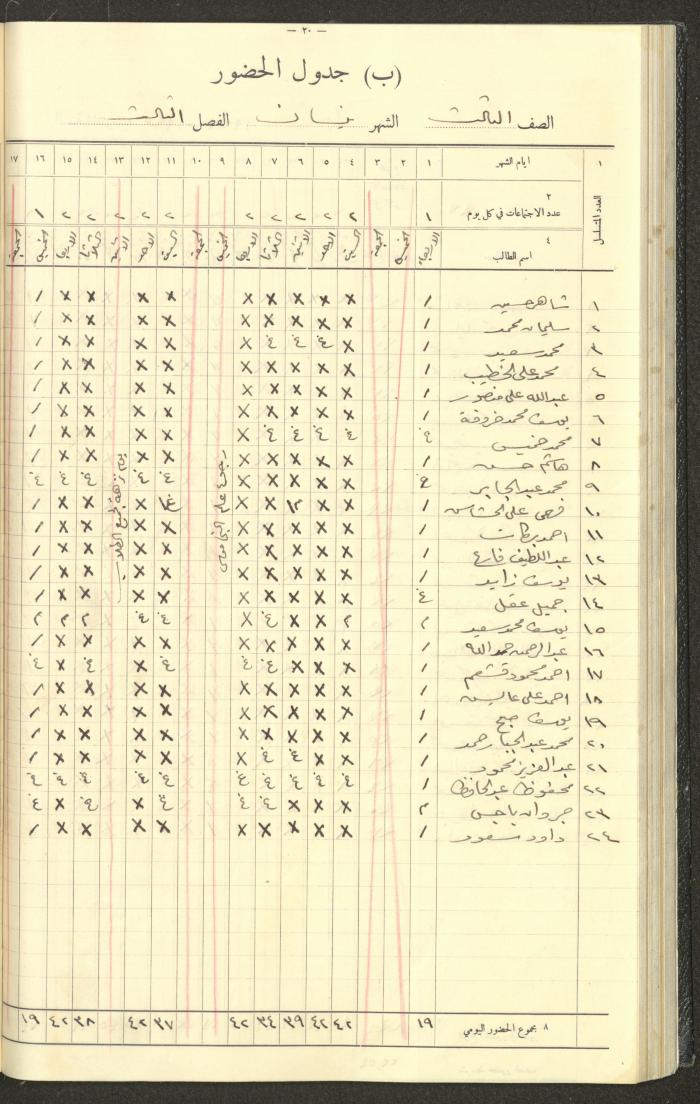 — ٢٠ —
(ب) جدول الحضور
الصف الثالث الشهر نيسان الفصل الثالث
١ ايام الشهر ١ ٢ ٣ ٤ ٥ ٦ ٧ ٨ ٩ ١٠ ١١ ١٢ ١٣ ١٤ ١٥ ١٦ ١٧
العدد المتسلسل
٢
عدد الاجتماعات في كل يوم ١ ٢ ٢ ٢ ٢ ٢ ٢ ٢ ٢ ٢ ٢ ١
٤
اسم الطالب الاربعاء الخميس الجمعة السبت الاحد الاثنين الثلاثا الاربعا الخميس الجمعة السبت الاحد الاثنين الثلاثا الاربعا الخميس الجمعة
١ شاهر حسين / x x x x x x x x x /
٢ سليمان محمد / x x x x x x x x x /
٣ محمد سعيد / x غ غ غ x x x x x /
٤ محمد علي الخطيب / x x x x x x x x x /
٥ عبدالله علي منصور / x x x x x x x x x /
٦ يوسف محمد خروفة / x x x x x x x x x /
٧ محمد خميس غ غ غ غ غ x x x x x /
٨ هاشم حسن / x x x x x x x x x /
٩ محمد عبد الجابر غ x x x x x غ غ غ غ غ
١٠ / x x x x x x x /
١١ احمد بركات / x x x x x x x x x /
١٢ عبد اللطيف فارع / x x x x x x x x x /
١٣ يوسف زايد / x x x x x x x x x /
١٤ جميل عقل غ x x x x x x x x x /
١٥ يوسف محمد سعيد م م x x غ x غ غ م م م
١٦ عبد الرحمن حمد الله / x x x x x x x x x /
١٧ احمد محمود قشعم / x x x غ غ غ x غ x غ
١٨ احمد علي / x x x x x x x x x /
١٩ يوسف صبح / x x x x x x x x x /
٢٠ محمد عبد الجبار حمد / x x x x x x x x x /
٢١ عبد العزيز محمود / x x غ غ x x x x x /
٢٢ محفوظ عبد الحافظ / غ غ غ غ غ غ غ غ غ غ
٢٣ باجس م x x x غ غ غ x غ x غ
٢٤ داود سعود / x x x x x x x x x /
يوم نزهة لجميع الطلاب
رجوع علم النبي موسى
٨ مجموع الحضور اليومي ١٩ ٤٢ ٤٢ ٣٩ ٣٤ ٤٢ ٣٧ ٤٢ ٣٨ ٤٢ ١٩